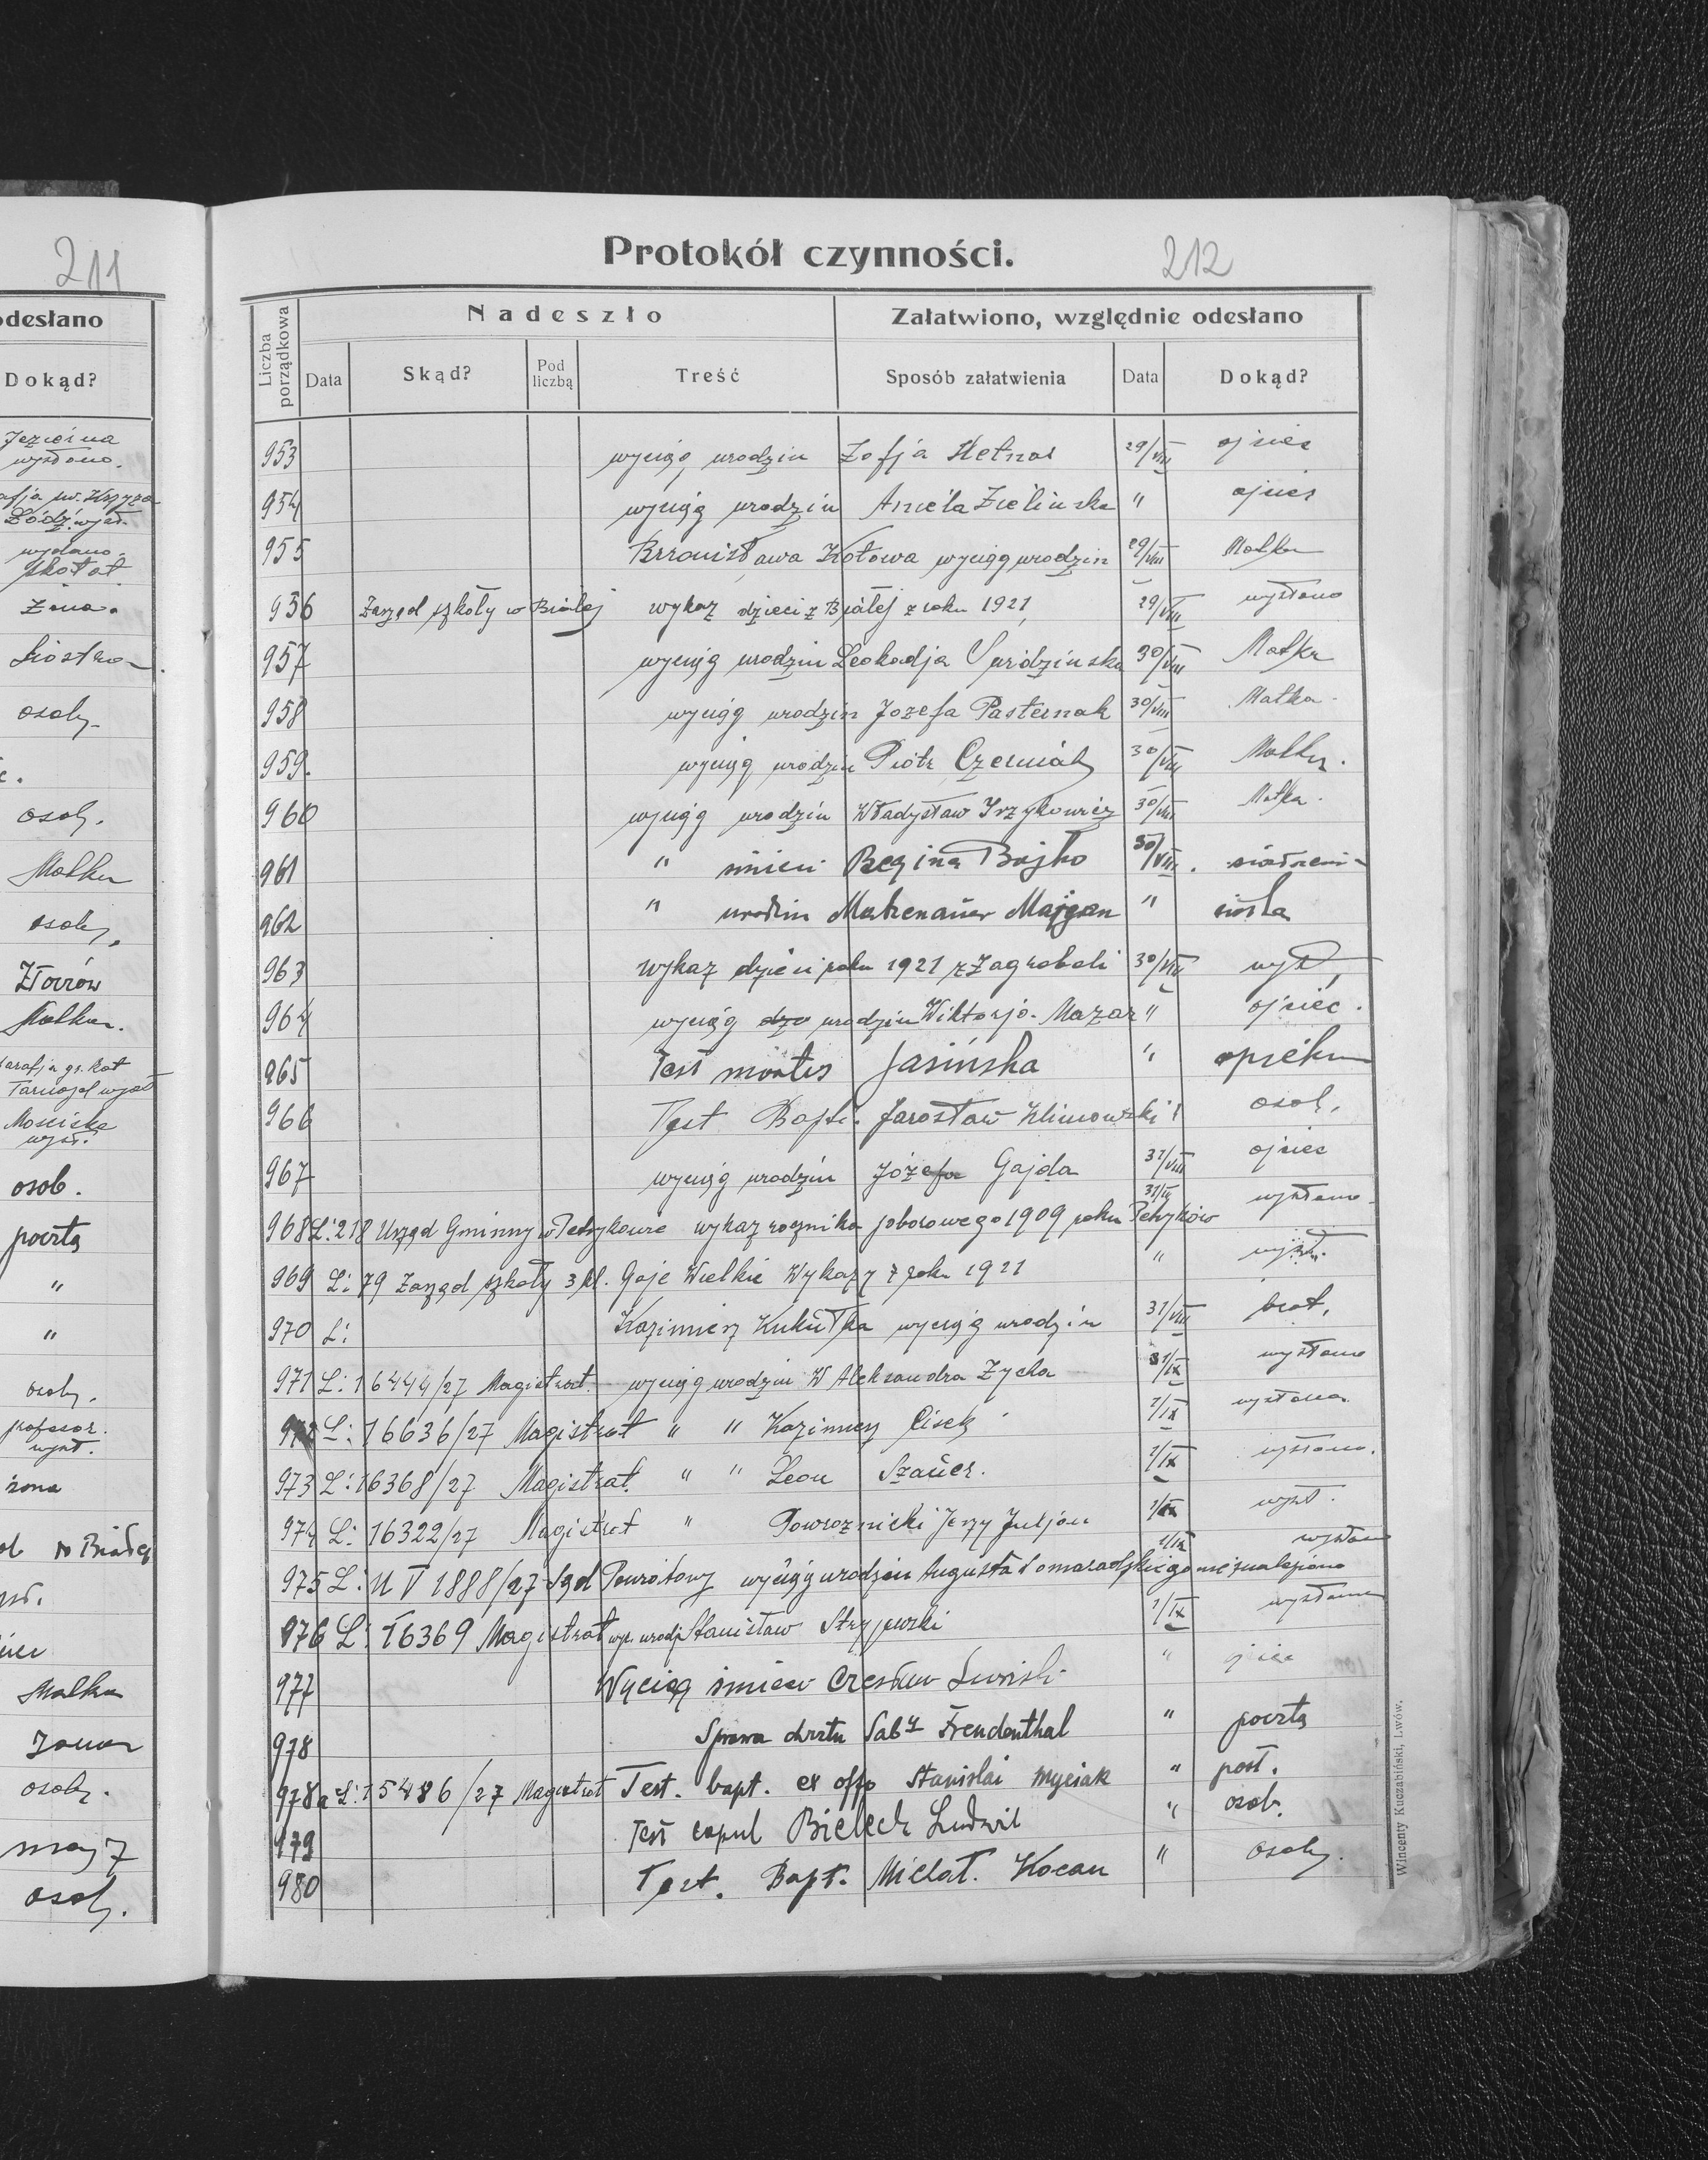 211
odesłano
Dokąd?
wysłano.
Łódź wysł.
wydano.
Żona.
Siostra
osob.
osob.
Matka
osob.
Złoczów
Matka.
parafja gr. kat
Tarnopol wysł
Mościska
wysł.
osob.
pocztą
"
"
osob.
profesor.
wysł.
żona
w Białej
Matka
osob.
osob.
Protokół czynności.
212
Liczba porządkowa
Nadeszło
Załatwiono, względnie odesłano
Data
Skąd?
Pod liczbą
Treść
Sposób załatwienia
Data
Dokąd?
953 wyciąg urodzin Zofja Hetnar 29/VIII ojciec
954 wyciąg urodzin Aniela Zielinska " ojciec
955 Bronisława Kotowa wyciąg urodzin 29/VIII Matka
956 Zarząd szkoły w Białej wykaz dzieci z Białej z roku 1921, 29/VIII wysłano
957 wyciąg urodzin Leokadja 30/VIII Matka
958 wyciąg urodzin Jozefa Pasternak 30/VIII Matka
959. wyciąg urodzin Piotr Czerniak 30/VIII Matka.
960 wyciąg urodzin Władysław Irzykowicz 30/VIII Matka.
961 " śmierci Regina Bojko 30/VIII.
962 " urodzin Majgan "
963 wykaz dzieci roku 1921 z Zagrobeli 30/VIII wysł.
964 wyciąg urodzin Wiktorja. Mazar " ojciec.
965 Test mortis Jasińska " opiekun
966 Test Bapt. Jarosław Klimowski osob.
967 wyciąg urodzin Józef Gajda 31/VIII ojciec
968 L: 218 Urząd Gminny w Petrykowie wykaz rocznika poborowego 1909 roku Petryków wysłano
969 L: 79 Zarząd szkoły 3 kl. Gaje Wielkie Wykazy z roku 1921 " wysł.
970 L: Kazimierz Kukułka wyciąg urodzin 31/VIII brat.
971 L: 16444/27 Magistrat. wyciąg urodzin W Aleksandra Zycha 1/IX wysłano
972 L: 16636/27 Magistrat " " Kazimierz Cisek 1/IX wysłano
973 L: 16368/27 Magistrat. " " Leon Szauer. 1/IX wysłano.
974 L: 16322/27 Magistrat " Powroznicki Jerzy Juljan 1/IX wysł.
975 L: U V 1888/27 Sąd Powiatowy wyciąg urodzin Augusta Domaradzkiego nie znaleziono 1/IX wysłano
976 L: 16369 Magistrat wyc. urodz. Stanisław 1/IX wysłano
977 Wyciąg śmierci Czesław " ojciec
978 Sprawa chrztu Freudenthal " pocztą
978a L: 15486/27 Magistrat Test. bapt. ex offo Stanislai Myciak " post.
979 Test copul Bielech Ludwik " osob.
980 Test. Bapt. Michał. Kocan " osob.
Wincenty Kuczabiński, Lwów.